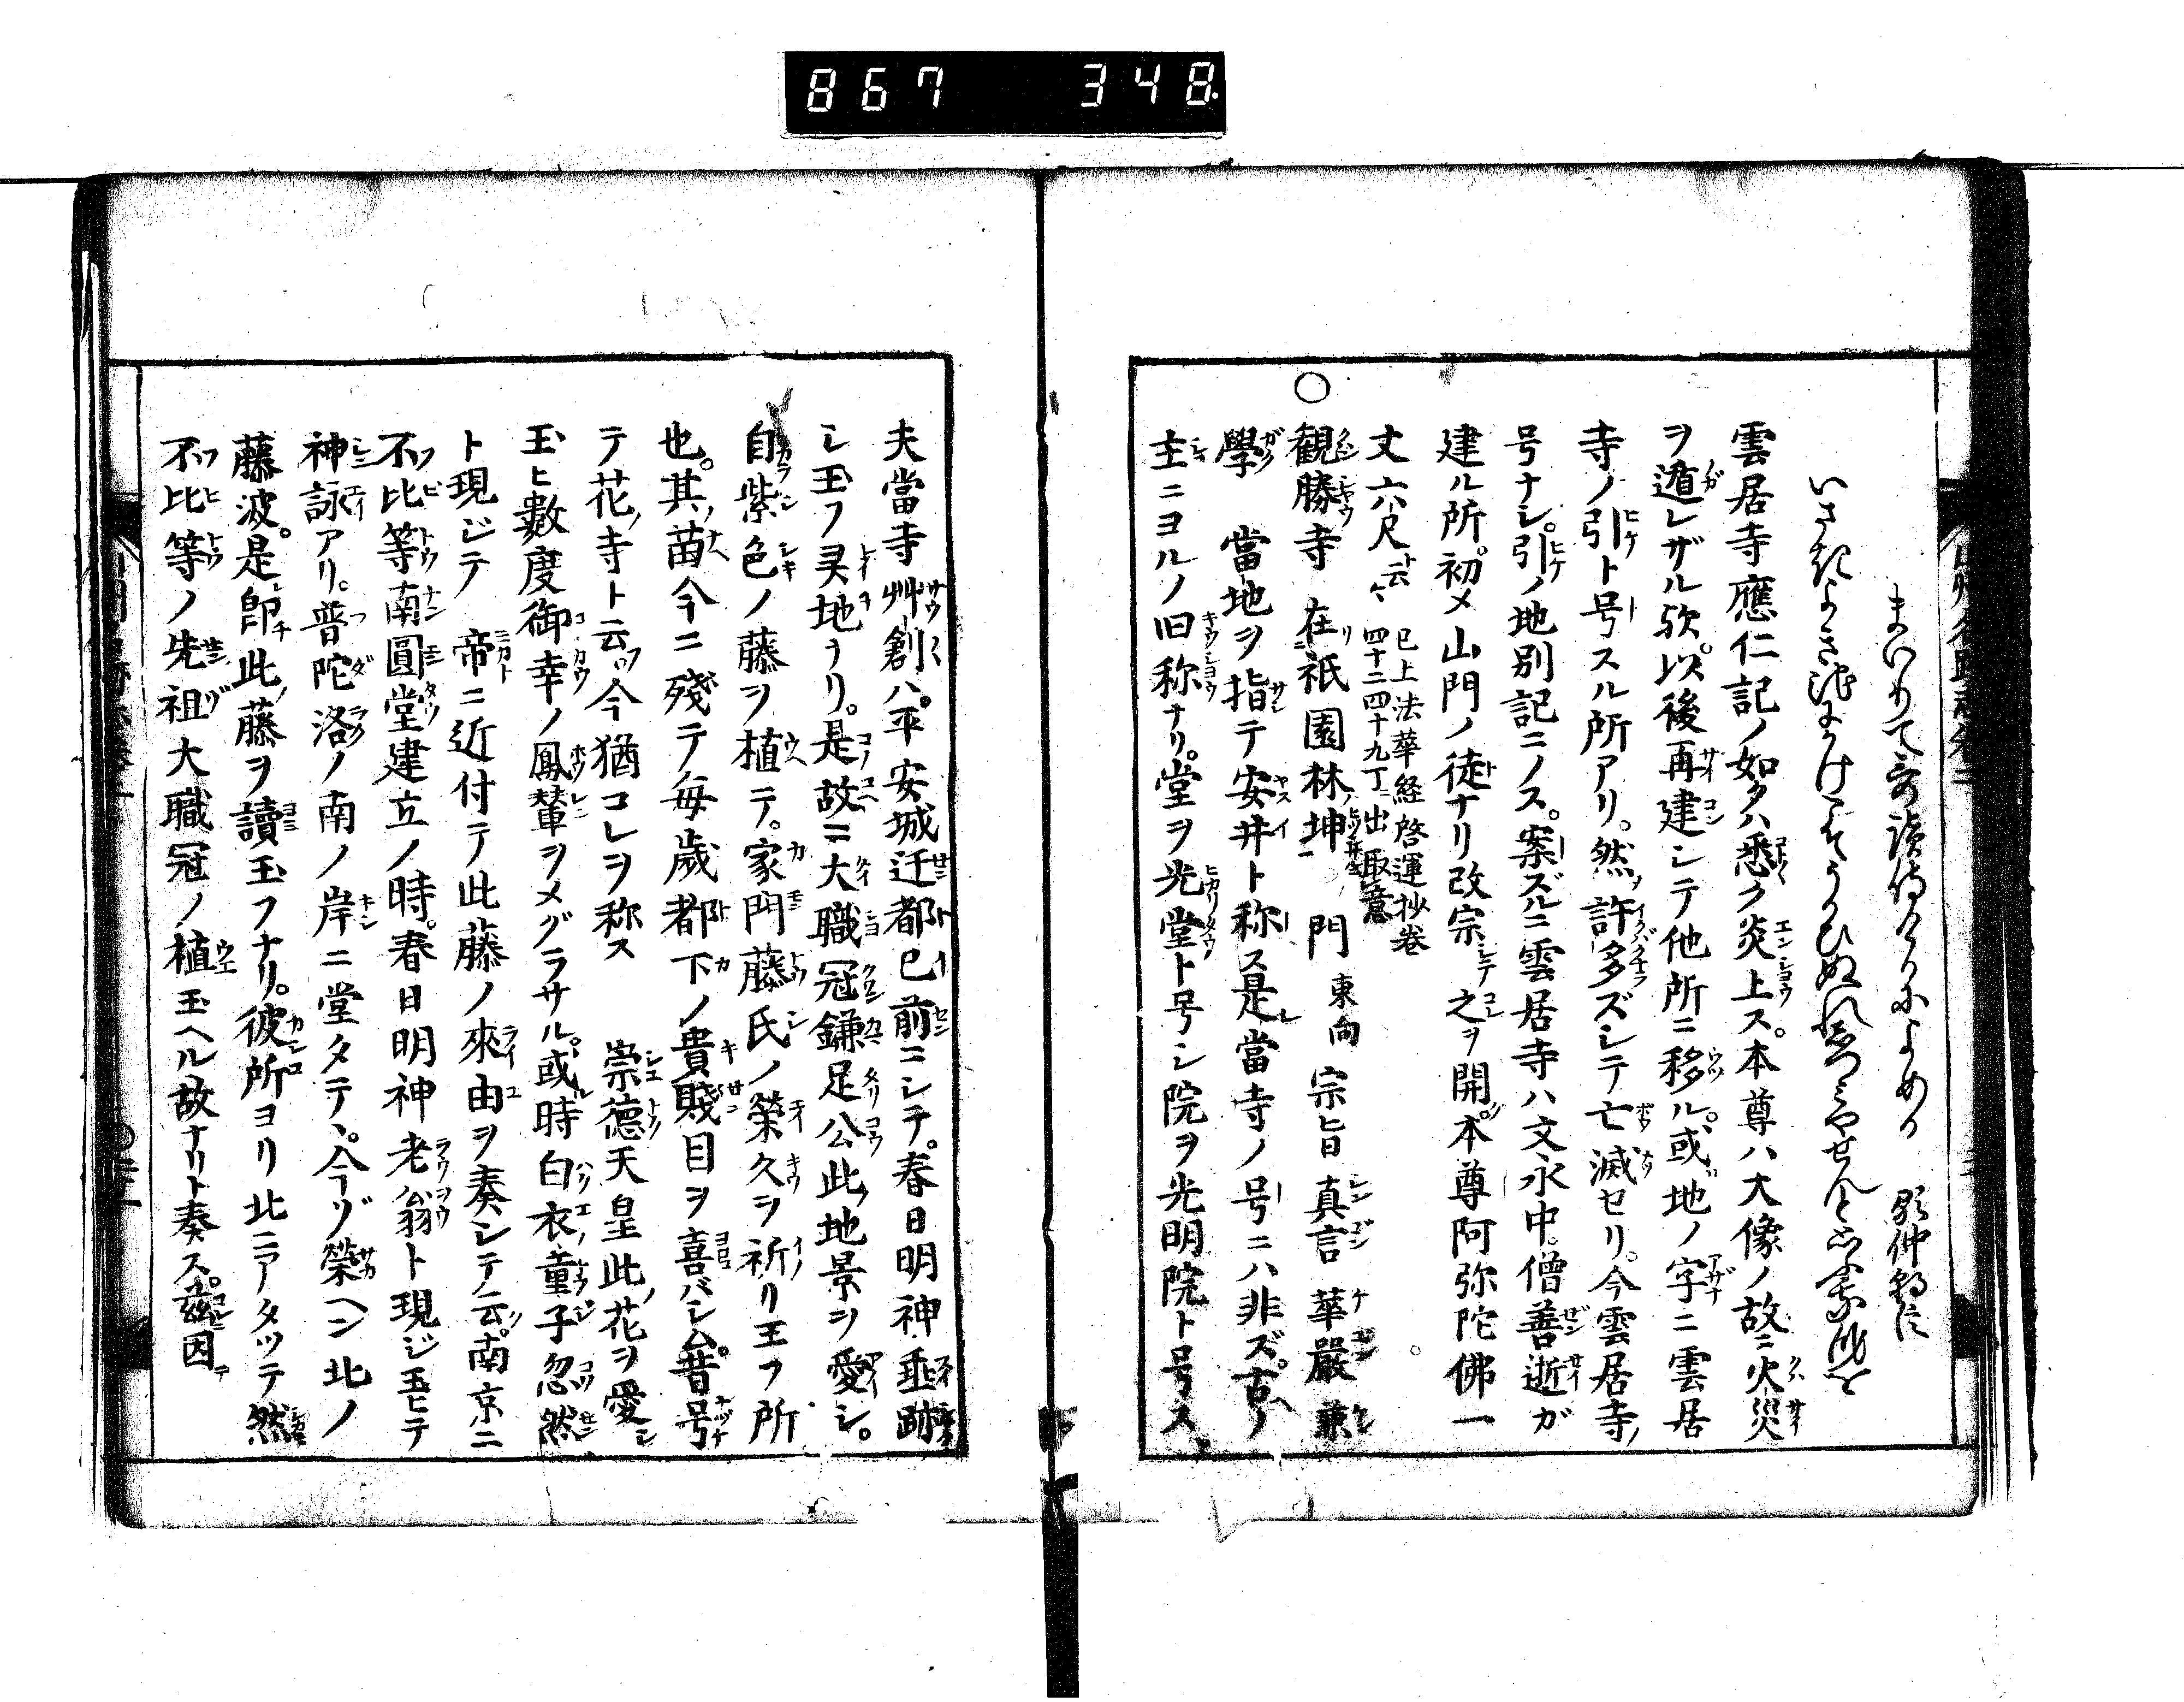 867 348
まいりて哥読侍けるによめる 顕仲朝臣
雲居寺應仁記ノ如クハ悉ク炎上ス。本尊ハ大像ノ故ニ火災
ヲ遁レザル欤。以後再建シテ他所ニ移ル。或ハ地ノ字ニ雲居
寺ノ引ト号スル所アリ。然ノ許多ズシテ亡滅セリ。今雲居寺ノ
号ナシ。引ノ地別記ニノス。案ズルニ雲居寺ハ文永中僧善逝ガ
建ル所。初メ山門ノ徒ナリ改宗シテ之ヲ開ク。本尊阿弥陀佛一
丈六尺ト云々 已上法華経啓運抄巻
四十二四十九丁ニ出取意
○観勝寺 在祇園林ノ坤 門東向 宗旨真言華嚴兼
學 當地ヲ指テ安井ト称ス是レ當寺ノ号ニハ非ズ。古ヘノ
主ニヨルノ旧称ナリ。堂ヲ光堂ト号シ院ヲ光明院ト号ス
夫當寺艸創ハ。平安城迁都已前ニシテ。春日明神垂跡
シ玉フ灵地ナリ。是故ニ大職冠鎌足公此ノ地景ヲ愛シ。
自紫色ノ藤ヲ植テ。家門藤氏ノ榮久ヲ祈リ玉フ所
也。其ノ苗今ニ殘テ毎歳都下ノ貴賤目ヲ喜バシム。昔号
テ花ノ寺ト云フ今猶コレヲ称ス 崇徳天皇此ノ花ヲ愛シ
玉ヒ數度御幸ノ鳳輦ヲメグラサル。或ル時白衣ノ童子忽然
ト現ジテ 帝ニ近付テ此藤ノ來由ヲ奏シテ云ク。南京ニ
不比等南圓堂建立ノ時。春日明神老翁ト現ジ玉ヒテ
神詠アリ。普陀洛ノ南ノ岸ニ堂タテヽ。今ゾ榮ヘン北ノ
藤波。是レ即チ此ノ藤ヲ讀玉フナリ。彼所ヨリ北ニアタツテ然モ
不比等ノ先祖大職冠ノ植玉ヘル故ナリト奏ス。茲ニ因テ